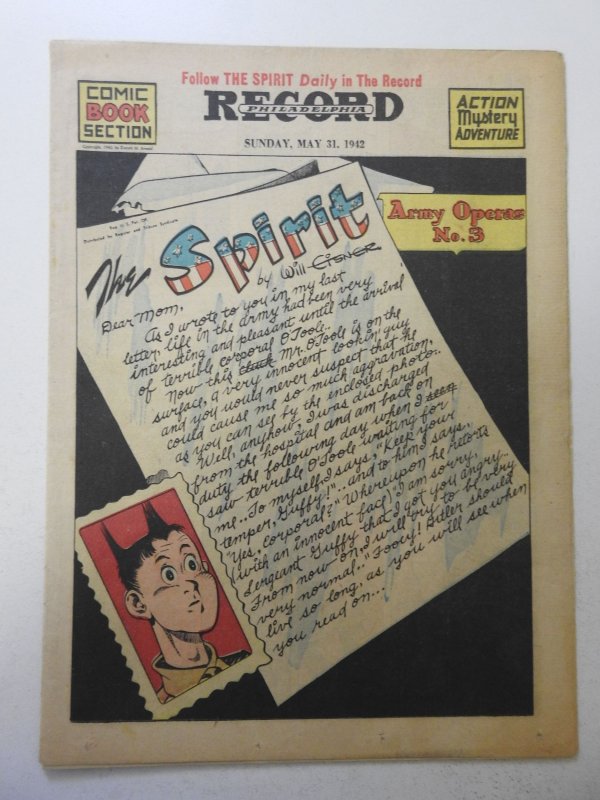 Follow THE SPIRIT Daily in The Record
COMIC
BOOK
SECTION
RECORD
PHILADELPHIA
ACTION
Mystery
ADVENTURE
SUNDAY, MAY 31, 1942
Reg. U. S. Pat. Off.
Distributed by Register and Tribune Syndicate
The Spirit
by Will Eisner
Army Operas
No. 3
Dear Mom,
As I wrote to you in my last
letter, life in the army had been very
interesting and pleasant until the arrival
of terrible corporal O'Toole..
Now this Mr. O'Toole is on the
surface, a very innocent lookin' guy
and you would never suspect that he
could cause me so much aggravation,
as you can see by the enclosed photo..
Well, anyhow, I was discharged
from the hospital and am back on
duty the following day when I seen
saw terrible O'Toole waiting for
me.. To myself, I says, "Keep your
temper, Guffy!"..and to him I says,
"Yes, corporal?" Whereupon he retorts
(with an innocent face) I am sorry,
Sergeant Guffy that I got you angry..
From now on, I will try to be very
very normal.." Fooey! Bitler should
live so long, as you will see when
you read on...